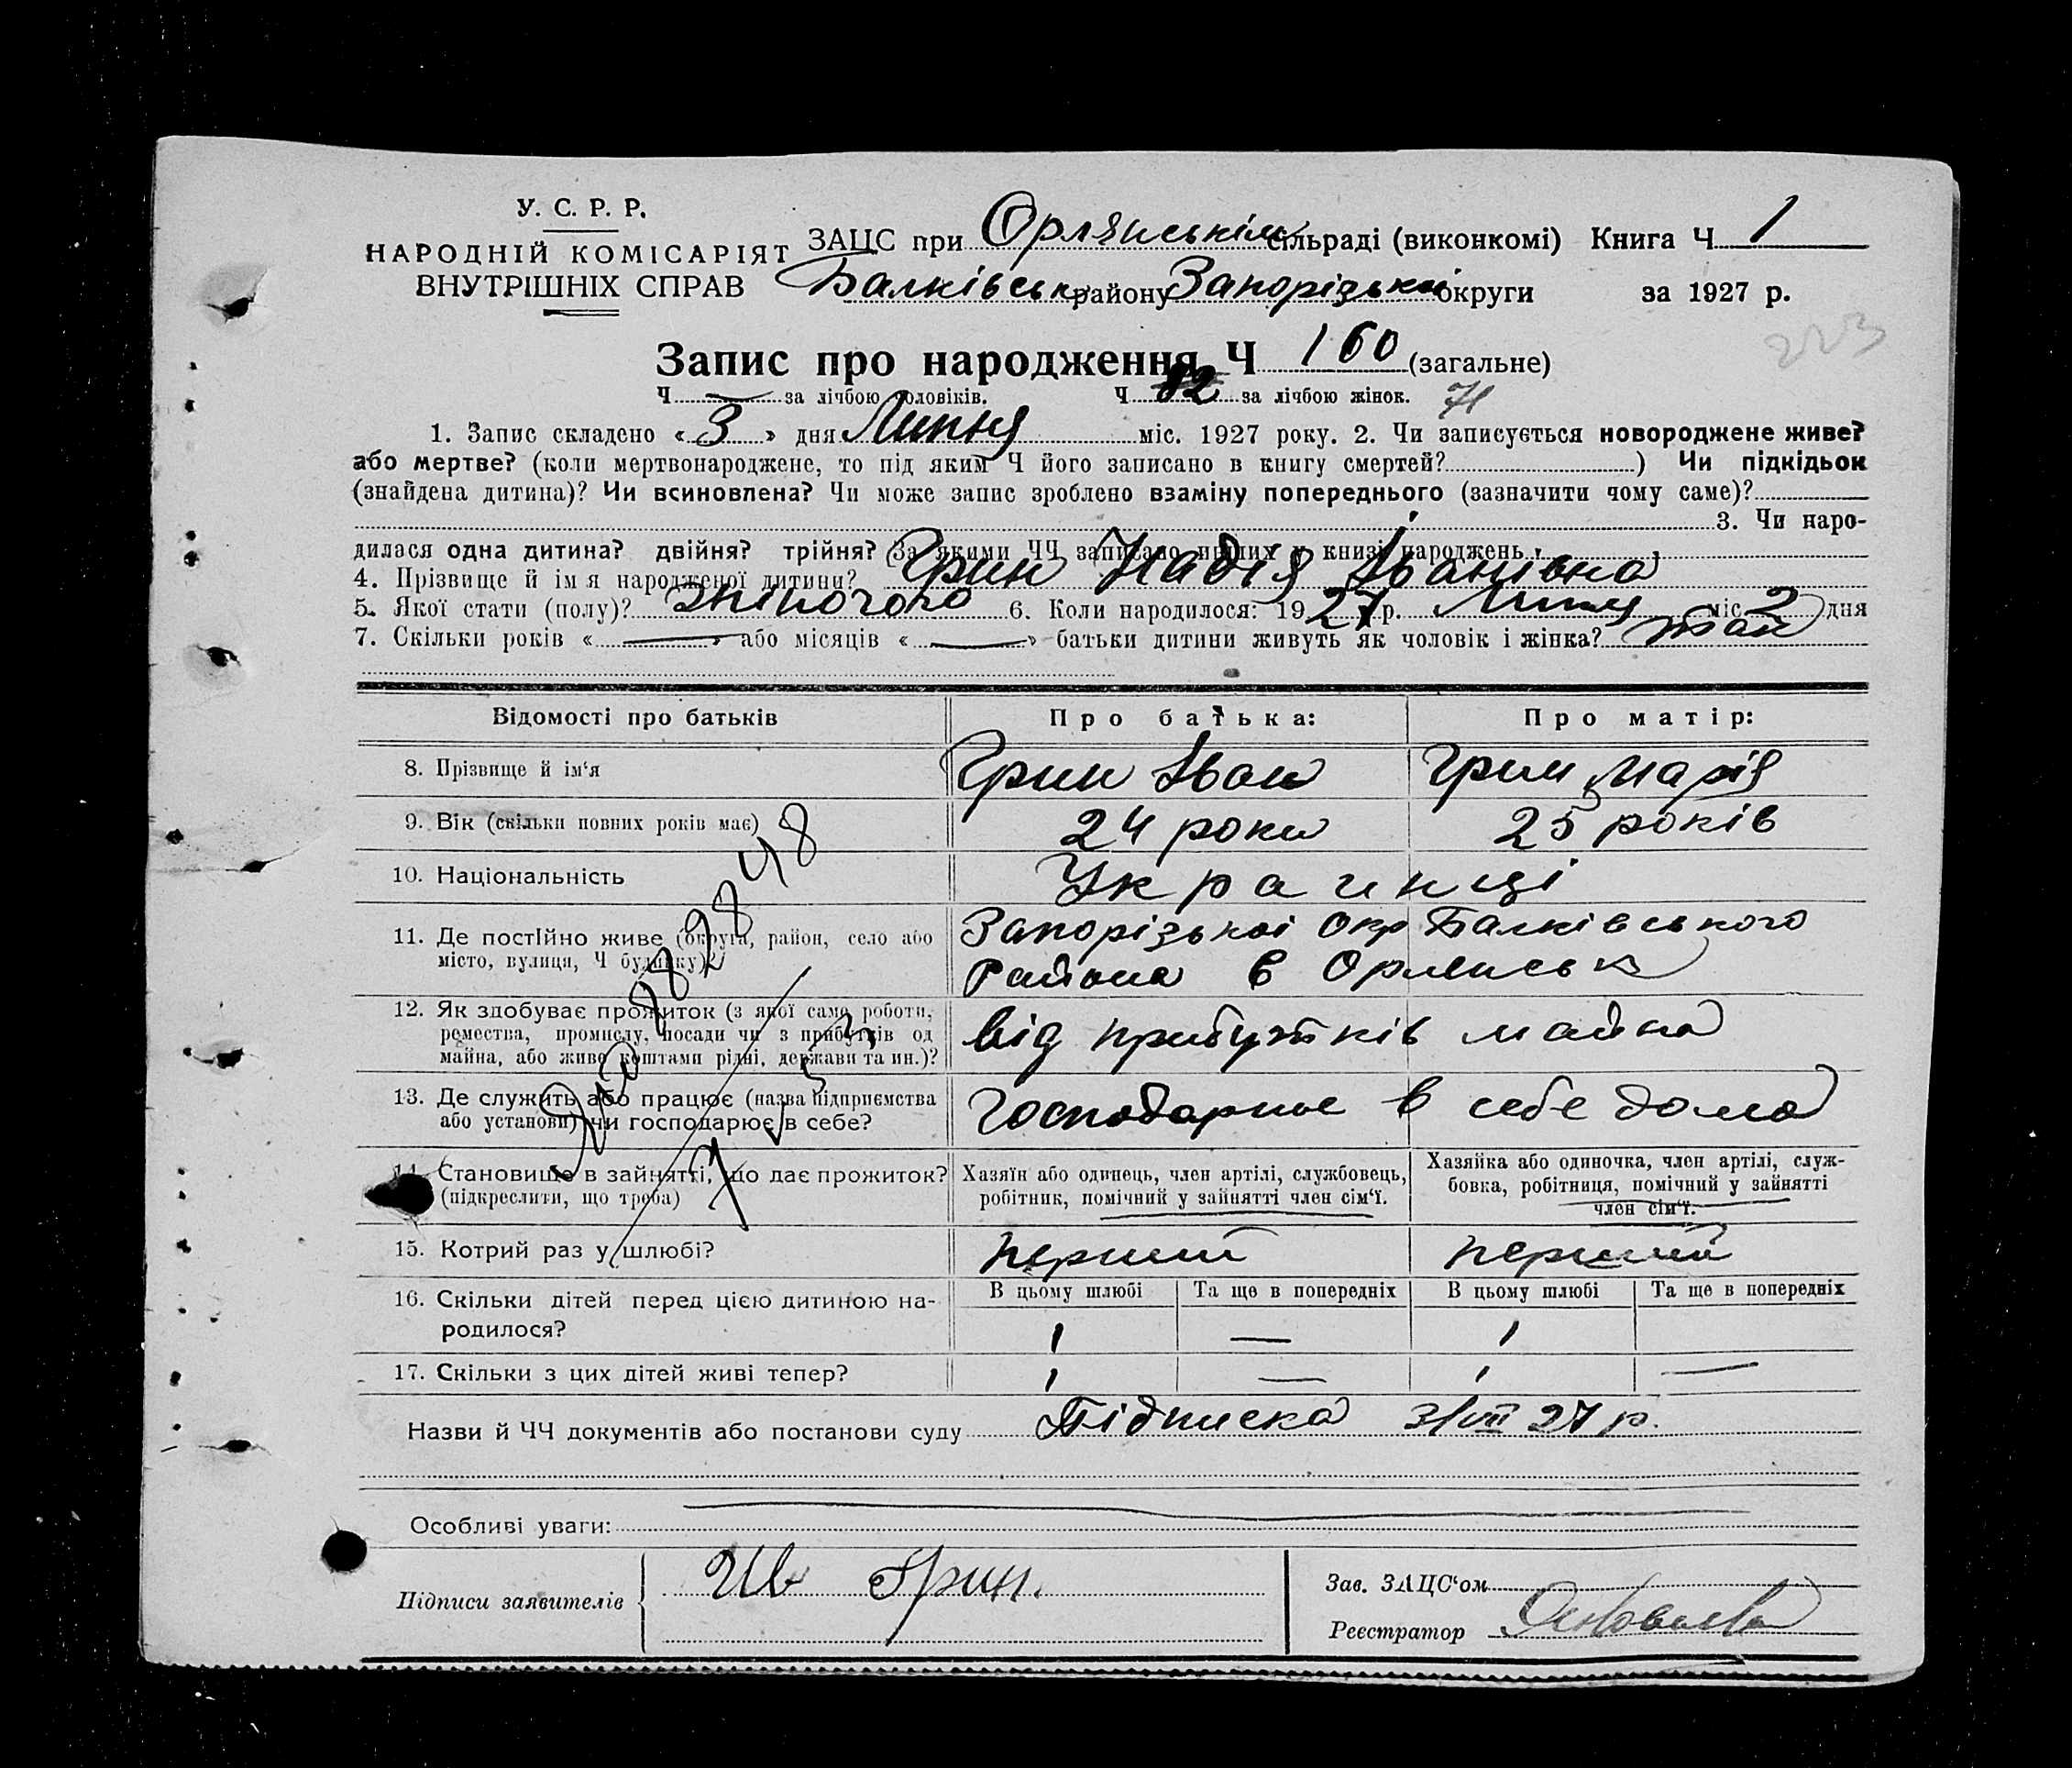 У. С. Р. Р.
НАРОДНІЙ КОМІСАРІЯТ
ВНУТРІШНІХ СПРАВ
ЗАЦС при Орлянській сільраді (виконкомі) Книга Ч 1
Балківськ району Запорізької округи за 1927 р.
223
Запис про народження Ч 160 (загальне)
Ч за лічбою чоловіків. Ч 82 за лічбою жінок.
1. Запис складено « 3 » дня Липня міс. 1927 року. 2. Чи записується новороджене живе?
або мертве? (коли мертвонароджене, то під яким Ч його записано в книгу смертей? ) Чи підкідьок
(знайдена дитина)? Чи всиновлена? Чи може запис зроблено взаміну попереднього (зазначити чому саме)?
3. Чи наро-
дилася одна дитина? двійня? трійня? (За якими ЧЧ записано инших у книзі народжень
4. Прізвище й ім я народженої дитини? Грин Надія Іванівна
5. Якої стати (полу)? жіночого 6. Коли народилося: 1927 р. Липня міс. 2 дня
7. Скільки років « — » або місяців « — » батьки дитини живуть як чоловік і жінка? так
Відомості про батьків Про батька: Про матір:
8. Прізвище й ім‘я Грин Іван Грин Марія
9. Вік (скільки повних років має) 24 роки 25 років
10. Національність Украинці
11. Де постійно живе (округа, район, село або місто, вулиця, Ч будинку)? Запорізької Окр Балківського
Района в Орлянськ
12. Як здобуває прожиток (з якої саме роботи,
ремества, промислу, посади чи з прибутків од
майна, або живе коштами рідні, держави та ин.)? від прибутків майна
13. Де служить або працює (назва підприємства
або установи) чи господарює в себе? Господарює в себе дома
14. Становище в зайнятті, що дає прожиток?
(підкреслити, що треба)
Хазяїн або одинець, член артілі, службовець,
робітник, помічний у зайнятті член сім‘ї.
Хазяйка або одиночка, член артілі, служ-
бовка, робітниця, помічний у зайнятті
член сім‘ї.
15. Котрий раз у шлюбі? перший перший
16. Скільки дітей перед цією дитиною на-
родилося?
В цьому шлюбі Та ще в попередніх В цьому шлюбі Та ще в попередніх
1 — 1
17. Скільки з цих дітей живі тепер? 1 — 1 —
Назви й ЧЧ документів або постанови суду Підписка 3/VII 27 р.
Особливі уваги:
Підписи заявителів Ив Грин.
Зав. ЗАЦС‘ом
Реєстратор